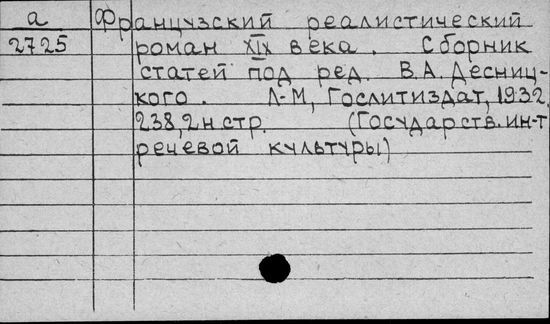 а Французский реалистический
2725 роман XIX века. Сборник
статей под ред. В.А. Десниц-
кого. Л-М, Гослитиздат, 1932.
238,2 н стр. (Государств. ин-т
речевой культуры)